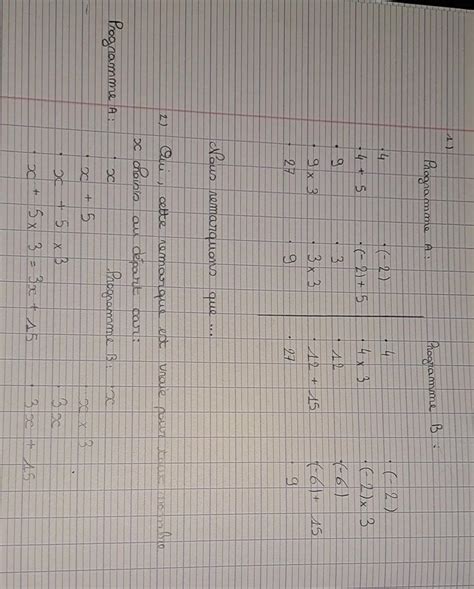 1)
Programme A :
Programme B :
. 4 . (-2) . 4 . (-2)
. 4 + 5 . (-2) + 5 . 4 x 3 . (-2) x 3
. 9 . 3 . 12 . (-6)
. 9 x 3 . 3 x 3 . 12 + 15 . (-6) + 15
. 27 . 9 . 27 . 9
Nous remarquons que ...
2) Oui, cette remarque est vraie pour tout nombre
x choisis au départ car :
Programme A : . x Programme B : . x
. x + 5 . x x 3
. x + 5 x 3 . 3x
. x + 5 x 3 = 3x + 15 . 3x + 15